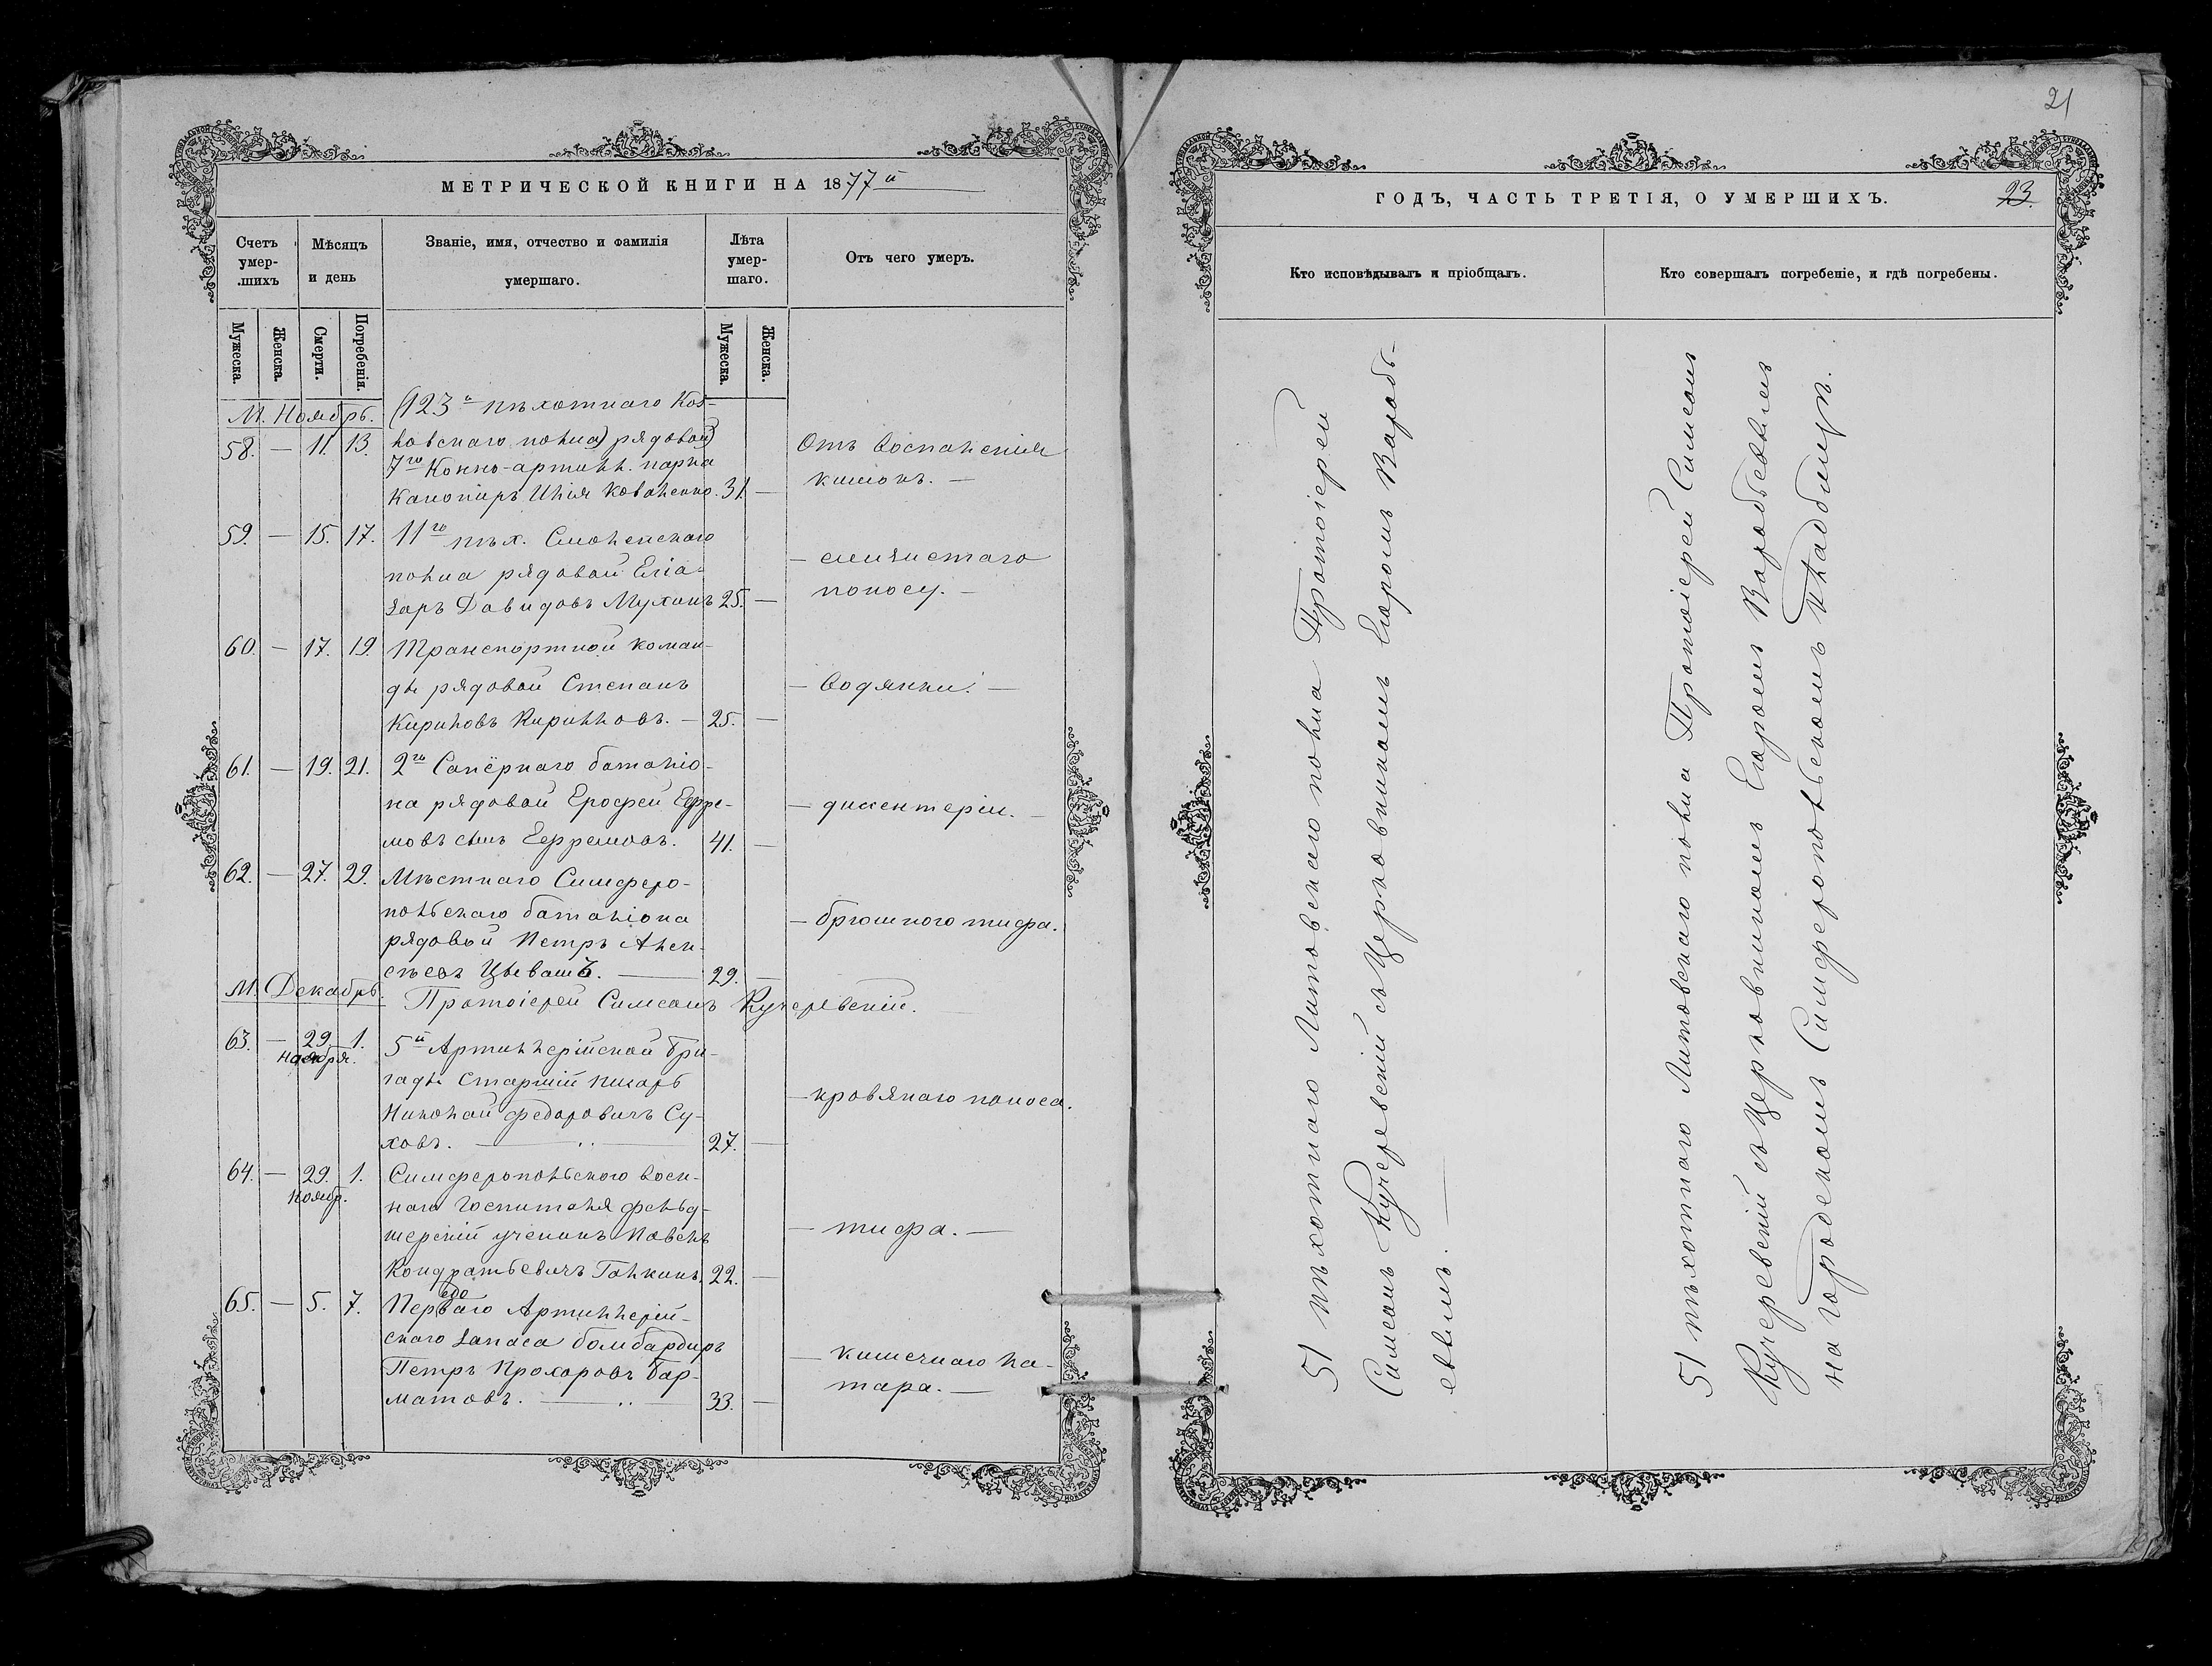 МЕТРИЧЕСКОЙ КНИГИ НА 1877й
Счетъ умер-.шихъ
Мѣсяцъ и день
Званіе, имя, отчество и фамилія умершаго.
Лѣта умер-шаго.
Отъ чего умеръ.
Мужеска.
Женска.
Смерти.
Погребенія.
Мужеска.
Женска.
М. Ноябрь.
(123й пѣхотнаго Коз-
58. — 11. 13. ловскаго полка) рядовой)
7го Конно-артилл. парка
Канониръ Илія Коваленко. 31 —
Отъ воспаленія
кишокъ. —
59. — 15. 17. 11го пѣх. Смоленскаго
полка рядовой Еліа-
заръ Давидовъ Мухинъ 25. —
— слизистаго
поносу. —
60. — 17. 19. Транспортной коман-
ды рядовой Степанъ
Кириловъ Кирилловъ. — 25. —
— водянки. —
61. — 19. 21. 2го Сапёрнаго баталіо-
на рядовой Ерофей Ефре-
мовъ сынъ Ефремовъ. 41. —
— диссентеріи. —
62. — 27. 29. Мѣстнаго Симферо-
польскаго баталіона
рядовой Петръ Алек-
сѣевъ Цывашъ. — 29. —
— брюшного тифа.
М. Декабрь.
Протоіерей Симеонъ Кучеревскій. —
63. — 29 1. 5й Артиллерійской бри-
Ноября.
гады Старшій писарь
Николай Федоровичъ Су-
ховъ. — 27. —
— кровянаго поноса.
64. — 29. 1. Симферопольскаго воен-
Ноябр.
наго Госпиталя фельд-
шерскій ученикъ Павелъ
Кондратьевичъ Галкинъ. 22. —
— тифа. —
65. — 5. 7. Перваго Артиллерій-
скаго Запаса бомбардиръ
Петръ Прохоровъ Бар-
матовъ. — 33. —
— кишечнаго ка-
тара. —
21
ГОДЪ, ЧАСТЬ ТРЕТІЯ, О УМЕРШИХЪ.
23.
Кто исповѣдывалъ и пріобщалъ.
Кто совершалъ погребеніе, и гдѣ погребены.
51 пѣхотнаго Литовскаго полка Протоіерей
Симеонъ Кучеревскій съ Церковникомъ Егоромъ Воробь-
евымъ. —
51 пѣхотнаго Литовскаго полка Протоіерей Симеонъ
Кучеревскій съ Церковникомъ Егоромъ Воробьевымъ
на городскомъ Симферопольскомъ кладбищѣ.